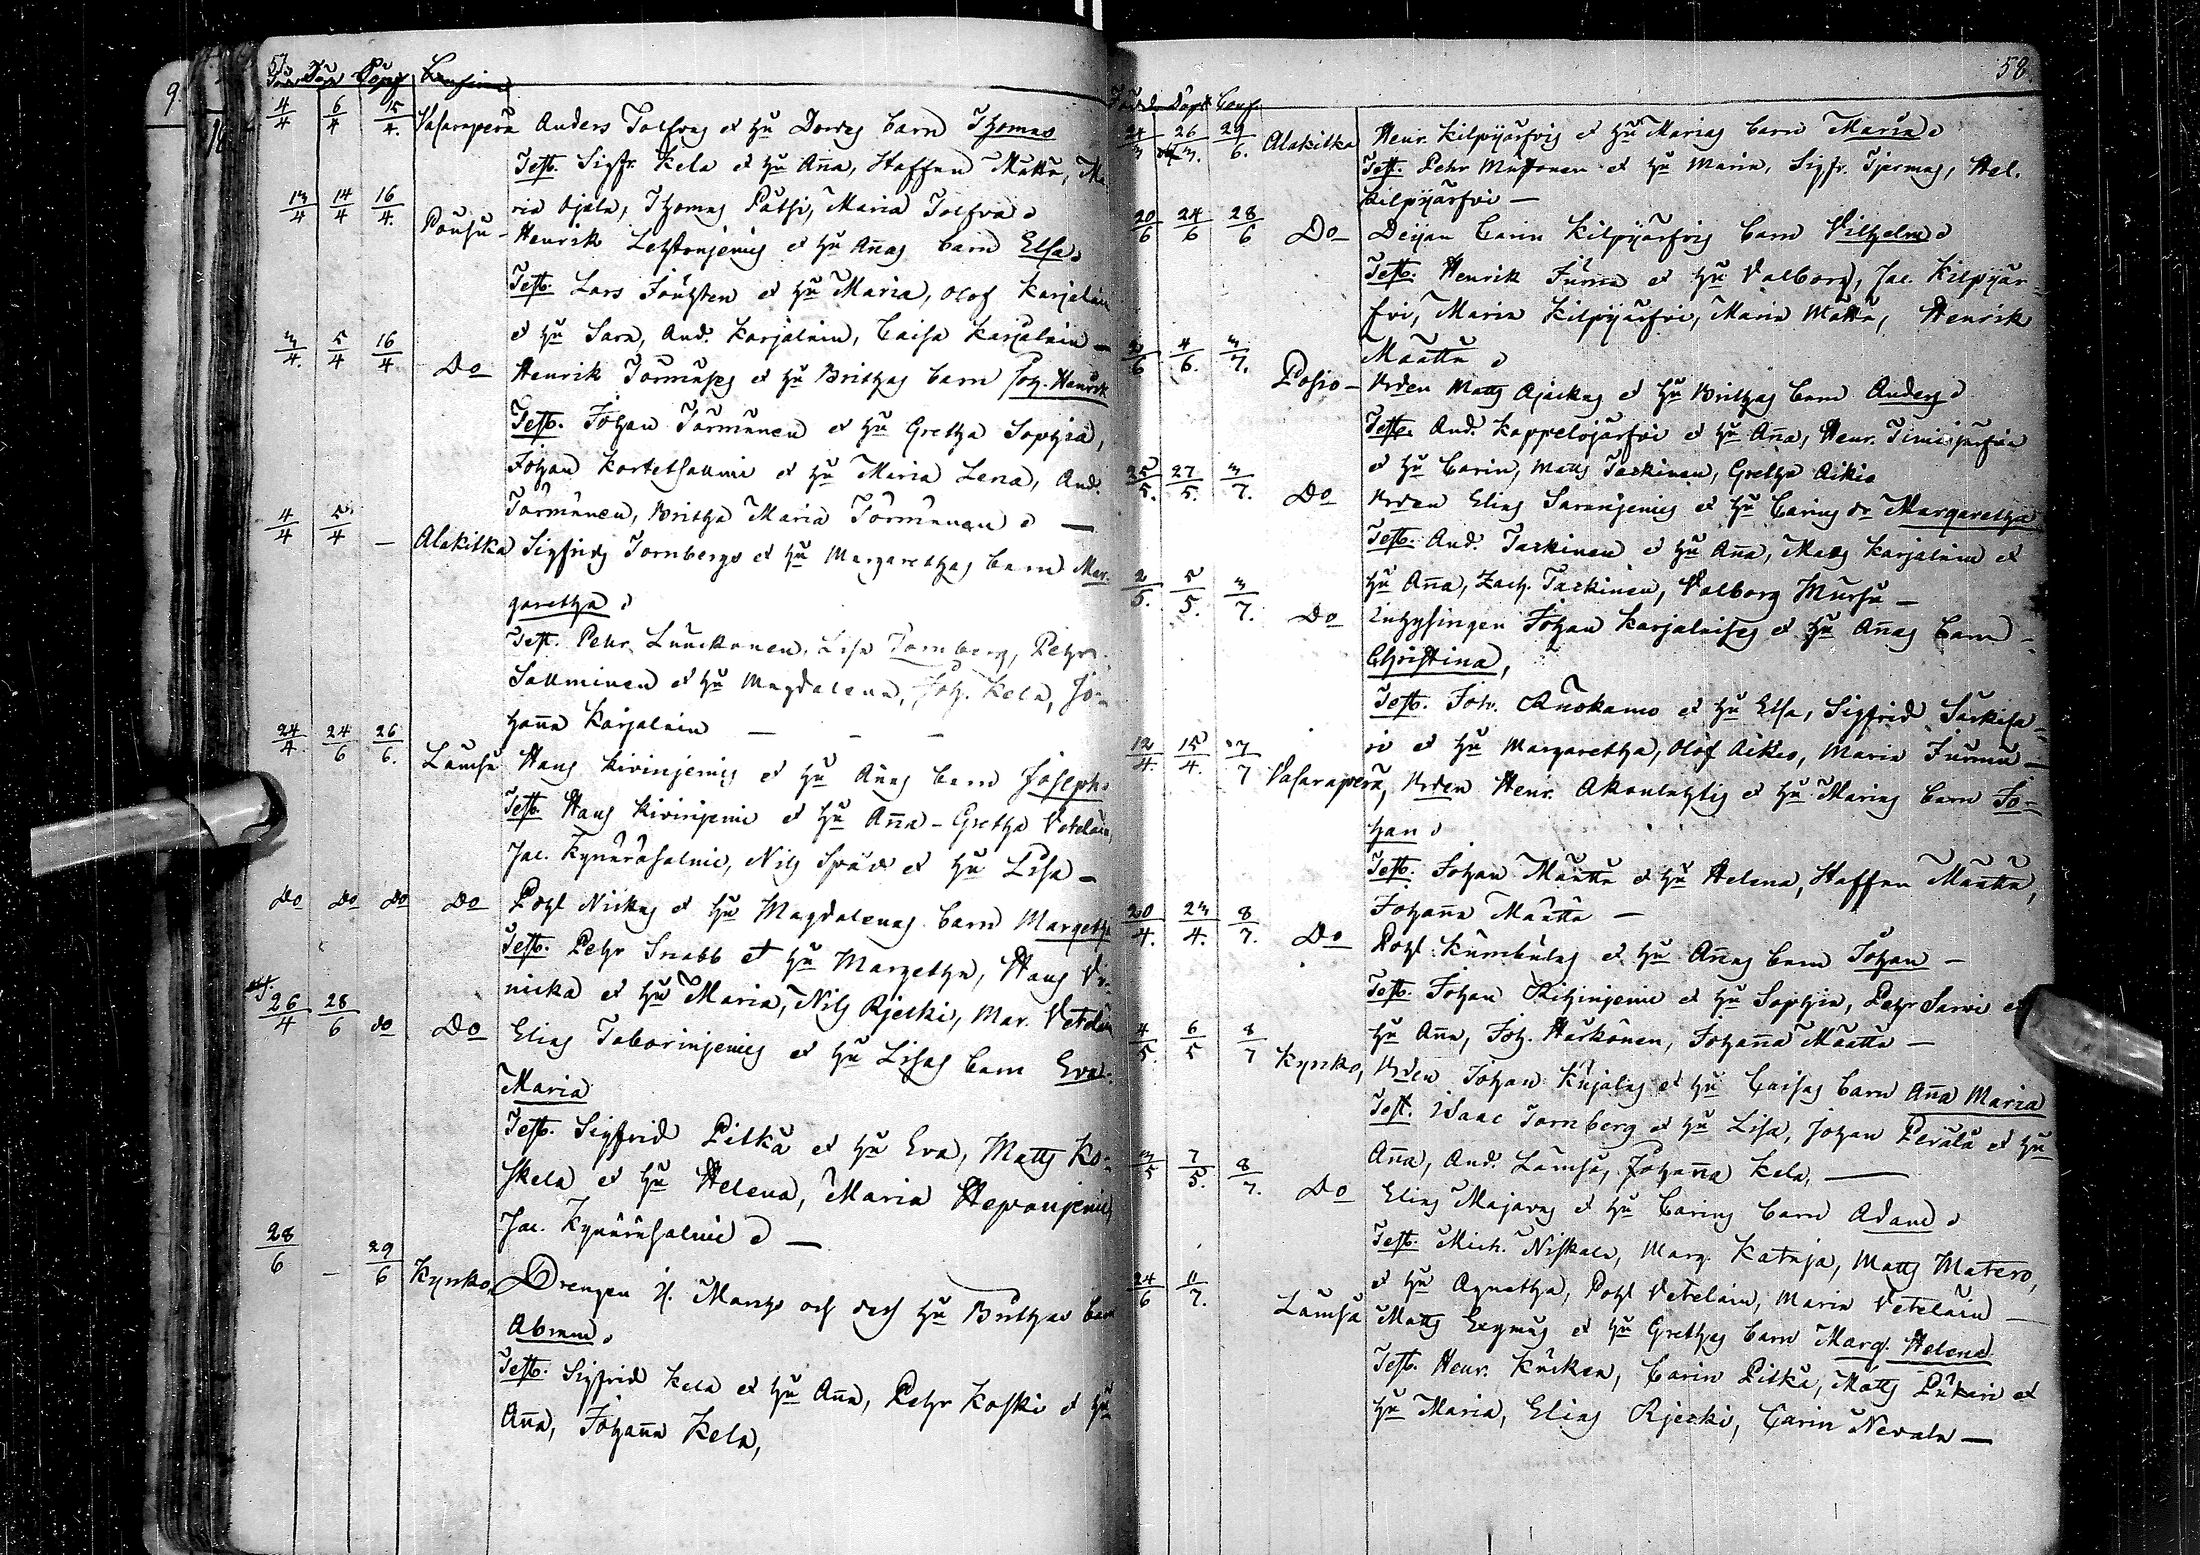 57
Född Döpt Conf
4/4 6/4 15/4. Vasarapera Anders Tolfvas et hu Dordes barn Thomas
Test. Sigfr. Kela et hu Aña, Staffan Määttä, Ma
ria Ojala, Thomas Pätsi, Maria Tolfva
13/4 14/4 16/4. Pousu Henrik Lehtonjemis et hu Añas barn Elsa
Test. Lars et hu Maria, Olof Karjalain
et hu Sara, And. Karjalain, Caisa Karjalain —
3/4. 5/4 16/4 Do Henrik Törmäses et hu Brithas barn Joh. Henrik
Test. Johan Törmänen et hu Gretha Sophia,
Johan Kortetsalmi et hu Maria Lena, And.
Törmänen, Britha Maria Törmänen —
4/4 5/4 — Alakitka Sigfrids Tornbergs et hu Margarethas barn Mar-
garetha
Test. Pehr Luuckonen, Lisa Tornberg, Pehr
Salminen et hu Magdalena, Joh. Kela, Jo-
haña Karjalain — — —
24/4. 24/6 26/6. Lämsä Hans Kivinjemis et hu Añas barn Joseph
Test. Hans Kivinjemi et hu Aña – Gretha Vetelain,
Jac. Kynäräsalmi, Nils Späd et hu Lisa —
Do Do Do Do Pohl Nickas et hu Magdalenas barn Margetha
Test. Pehr Snabb et hu Margetha, Hans Vi-
nicka et hu Maria, Nils Rjecki, Mar. Vetelä
26/4 28/6 do Do Elias Taborinjemis et hu Lisas barn Eva
Maria
Test. Sigfrid Pitkä et hu Eva, Matts Ko-
skela et hu Helena, Maria Heponjemi,
Jac. Kynäräsalmi —
28/6 – 29/6 Kynko, Drengen H. Marits och dess hu Brithas bar
Abram
Test. Sigfrid Kela et hu Aña, Pehr Koski et hu
Aña, Johaña Kela,
58
Född Döpt Conf
24/3 26/3. 29/6. Alakitka Henr. Kilpijärfvis et hu Marias barn Maria
Test. Pehr Mustonen et hu Maria, Sigfr. Tjermas, Hel.
Kilpijärfvi —
20/6 24/6 28/6 Do Deijan Carin Kilpijärfvis barn Vilhelm
Test. Henrik Furma et hu Valborg, Jac. Kilpijär-
fvi, Maria Kilpijärfvi, Maria Määttä, Henrik
Määttä
2/6 4/6. 3/7. Posio — Bden Matts Ajäckas et hu Brithas barn Anders
Test. And. Kappelojärfvi et hu Aña, Henr. Timisjärfvi
et hu Carin, Matts Taskinen, Gretha Aikio
25/5. 27/5. 3/7. Do Bden Elias Saranjemis et hu Carins dr Margaretha
Test. And. Taskinen et hu Aña, Matts Karjalain et
hu Aña, Zach. Taskinen, Valborg Mursu —
2/5. 5/5. 3/7. Do Inhysingen Johan Karjalaises et hu Añas barn
Christina,
Test. Joh. Anokamo et hu Elsa, Sigfrid Särkisa-
ri et hu Margaretha, Olof Aikio, Maria Furma —
12/4. 15/4. 7/7 Vasarapera, Bden Henr. Akonlahtis et hu Marias barn Jo-
han
Test. Johan Määttä et hu Helena, Staffan Määttä,
Johaña Määttä —
20/4. 23/4. 8/7. Do Pohl Kämbälas et hu Añas barn Johan —
Test. Johan Riihinjemi et hu Sophia, Pehr Sarvi et
hu Aña, Joh. Härkönen, Johaña Määttä —
4/5. 6/5 8/7 Kynko, Bden Johan Kujalas et hu Caisas barn Aña Maria
Test. Isaac Tornberg et hu Lisa, Johan Perälä et hu
Aña, And. Lämsä, Johaña Kela, —
3/5 7/5. 8/7. Do Elias Majavas et hu Carins barn Adam
Test. Mich. Niskala, Marg. Kataja, Matts Matero,
et hu Agnetha, Pohl Vetelain, Maria Vetelain —
24/6 11/7. Lämsä Matts Erymäs et hu Grethas barn Marg. Helena
Test. Henr. Käcken, Carin Pitkä, Matts Pukari et
hu Maria, Elias Rjecki, Carin Nevala —